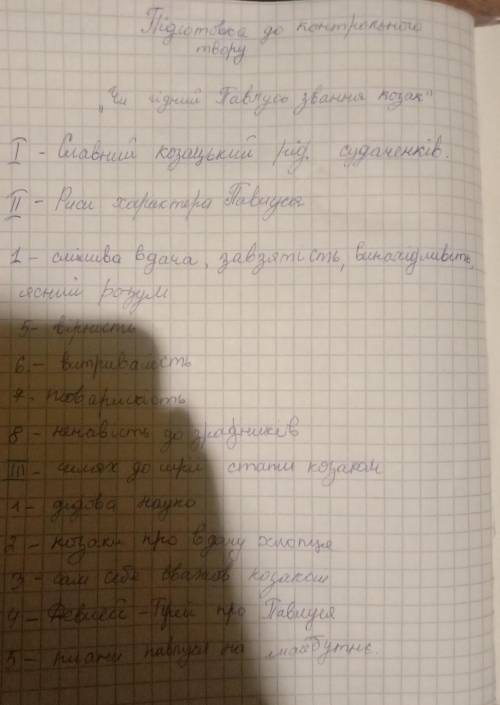 Підготовка до контрольного
твору
„Чи гідний Павлусь звання козак"
I - Славний козацький рід судаченків.
II - Риси характера Павлуся
1 - смілива вдача, завзятість, винахідливість,
ясний розум
5 - вірність
6. - витривалість
7. товариськість
8 - ненависть до зрадників
III - шлях до мрії стати козаком
1 - дідова наука
2 - козаки про вдачу хлопця
3 - сам себе вважав козаком
4 - Девлет - Гірей про Павлуся
5 - плани павлуся на майбутнє.